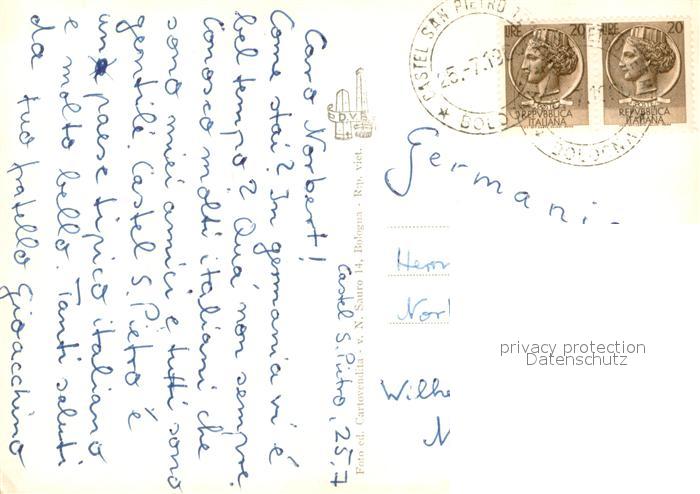 Castel S. Pietro, 25.7
Caro Norbert!
Come stai? In germania vi è
bel tempo? Qua non sempre.
Conosco molti italiani che
sono miei amici e tutti sono
gentili. Castel S. Pietro è
un paese tipico italiano
e molto bello. Tanti saluti
da tuo fratello Gioacchino
D.V.F.
Foto ed. Cartovendita - v. N. Sauro 14, Bologna - Rip. viet.
CASTEL SAN PIETRO
25.-7.19
BOLOGNA
LIRE 20
POSTE
REPVBBLICA
ITALIANA
LIRE 20
POSTE
REPVBBLICA
ITALIANA
Germani-
Herrn
Nor
Wilhe
N
privacy protection
Datenschutz